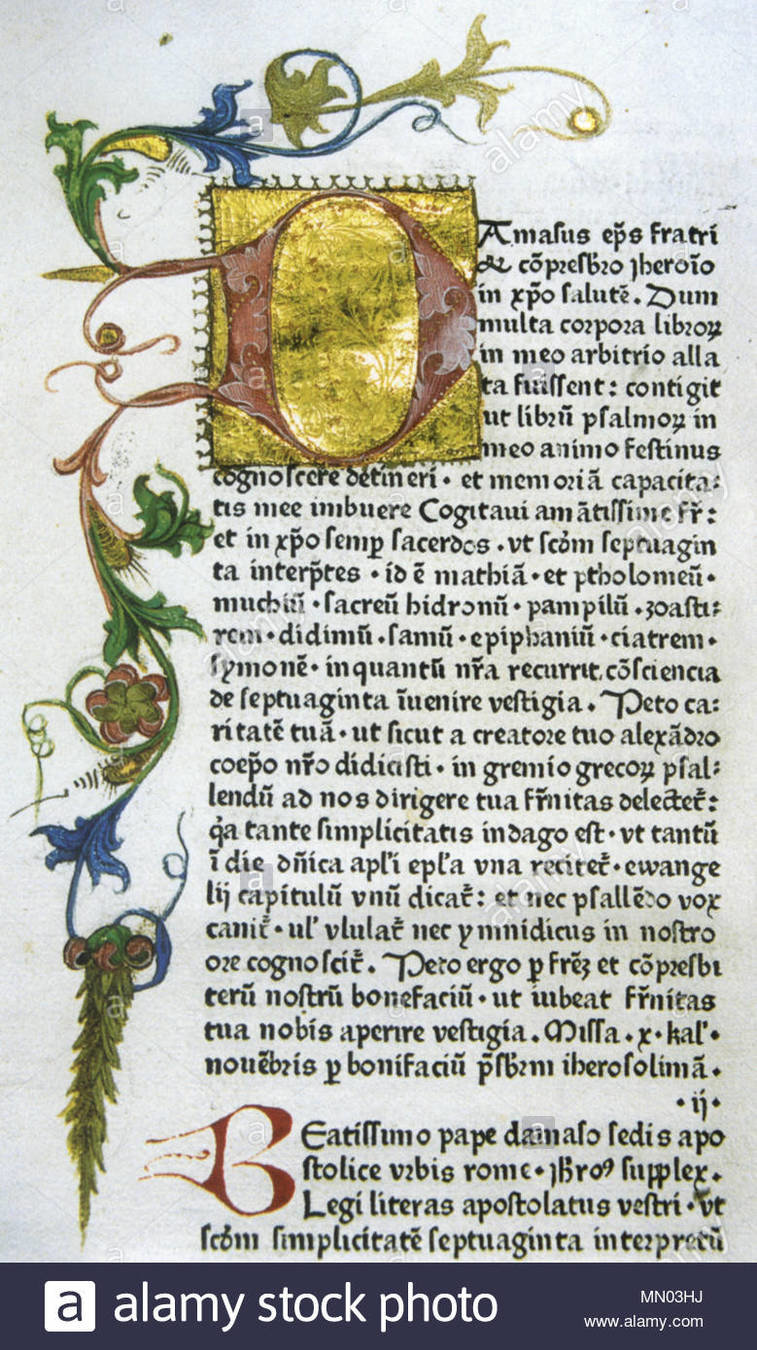 DAmasus ep̄s fratri
& cōpresbr̄o Jheroīo
in xp̄o salutē. Dum
multa corpora libroꝝ
in meo arbitrio alla
ta fuissent: contigit
ut librū psalmoꝝ in
meo animo festinus
cognoscere detineri. et memoriā capacita⸗
tis mee imbuere Cogitaui amātissime fr̄:
et in xp̄o semp̱ sacerdos. vt scd̄m septuagin
ta interp̄tes · id ē mathiā · et ptholomeū ·
muchiū · sacreū hidronū · pampilū · zoasti⸗
rem · didimū · samū · epiphaniū · ciatrem ·
symonē · inquantū nr̄a recurrit. cōsciencia
de septuaginta īuenire vestigia. Peto ca⸗
ritatē tuā · ut sicut a creatore tuo alexādro
coep̄o nr̄o didicisti · in gremio grecoꝝ psal⸗
lendū ad nos dirigere tua fr̄nitas delectet᷑:
q̄a tante simplicitatis indago est · vt tantū
ī die dn̄ica apl̓i epl̓a vna recitet᷑ · ewange
lij capitulū vnū dicat᷑: et nec psallēdo vox
canit᷑ · ul̓ vlulat᷑ nec ymnidicus in nostro
ore cognoscit᷑. Peto ergo p̱ fr̄eꝫ et cōpresbi
terū nostrū bonefaciū · ut iubeat fr̄nitas
tua nobis aperire vestigia. Missa. x. kal̓.
nouēbris p̱ bonifaciū p̄sbr̄m iherosolimā.
· ij ·
BEatissimo pape damaso sedis apo
stolice vrbis rome · Jhr̄oꝰ supplex.
Legi literas apostolatus vestri · vt
scd̄m simplicitatē septuaginta interpretū
a alamy stock photo
MN03HJ
www.alamy.com